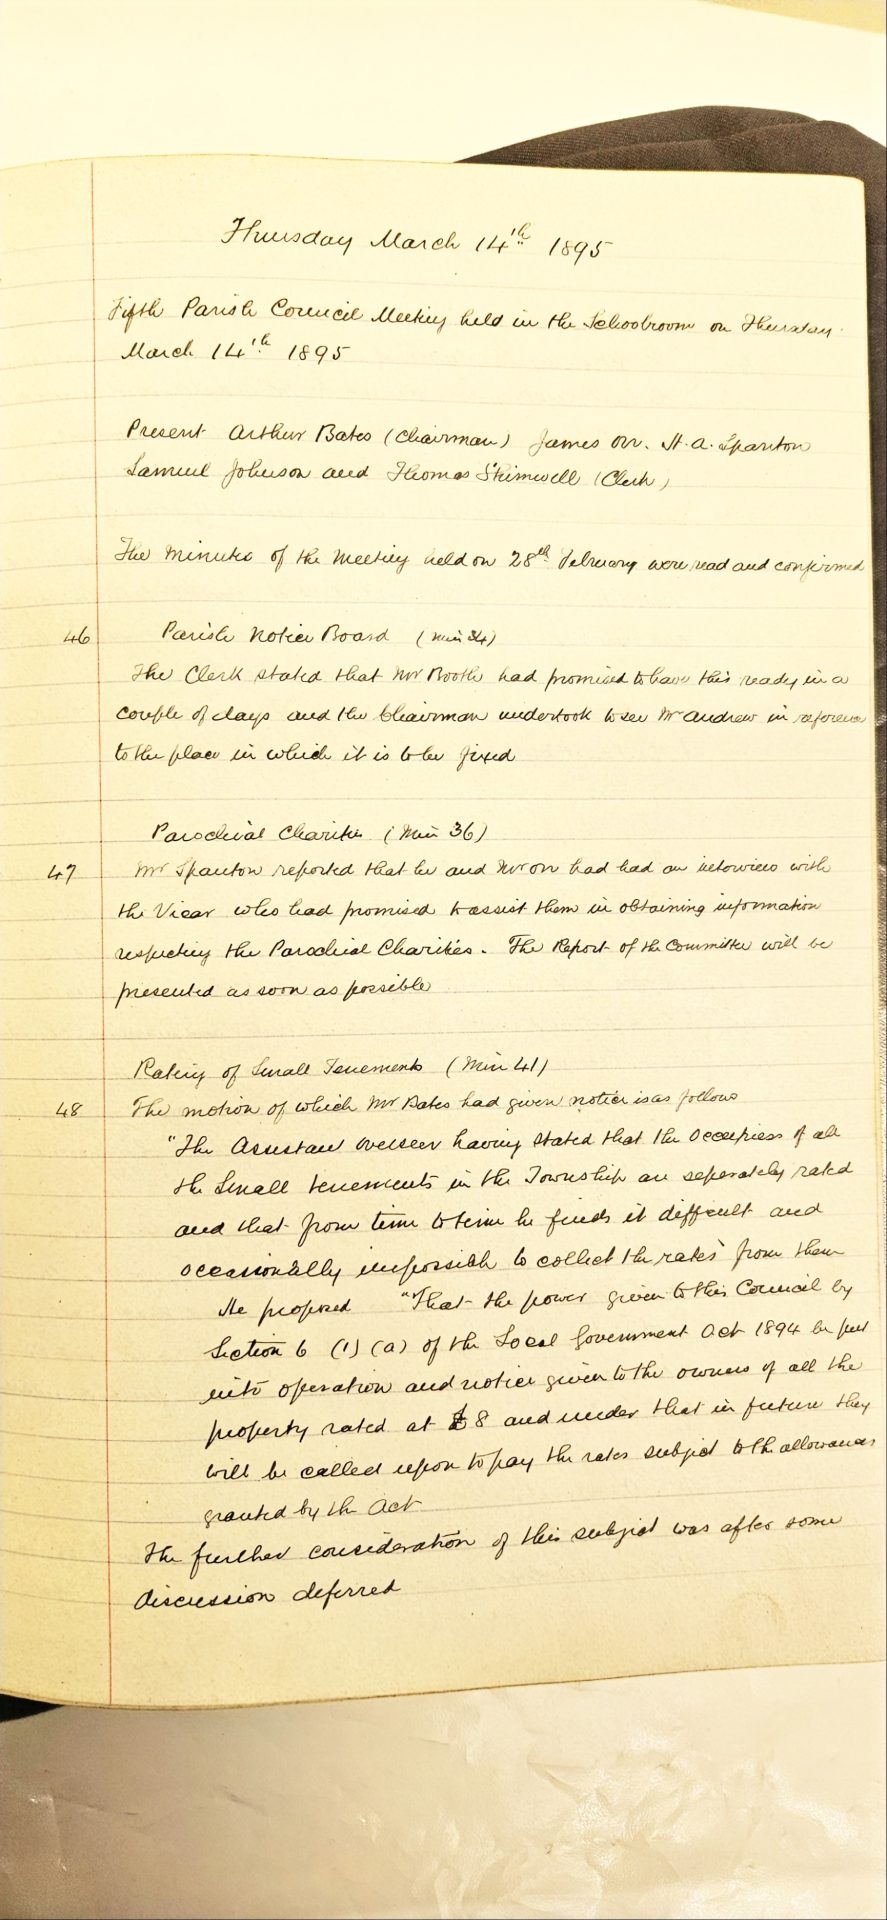 Thursday March 14th 1895
Fifth Parish Council Meeting held in the Schoolroom on Thursday
March 14th 1895
Present Arthur Bates (Chairman) James Orr. H. A. Spanton
Samuel Johnson and Thomas Shimwell (Clerk)
The Minutes of the Meeting held on 28th February were read and confirmed
46 Parish Notice Board (Min 34)
The Clerk stated that Mr Booth had promised to have this ready in a
couple of days and the Chairman undertook to see Mr Andrew in reference
to the place in which it is to be fixed
Parochial Charities (Min 36)
47 Mr Spanton reported that he and Mr Orr had had an interview with
the Vicar who had promised to assist them in obtaining information
respecting the Parochial Charities. The Report of the Committee will be
presented as soon as possible
Rating of Small Tenements (Min 41)
48 The motion of which Mr Bates had given notice is as follows
"The Assistant Overseer having stated that the Occupiers of all
the Small tenements in the Township are seperately rated
and that from time to time he finds it difficult and
occasionally impossible to collect the rates from them
He proposed "That the power given to this Council by
Section 6 (1) (a) of the Local Government Act 1894 be put
into operation and notice given to the owners of all the
property rated at £8 and under that in future they
will be called upon to pay the rates subject to the allowances
granted by the Act
The further consideration of this subject was after some
discussion deferred